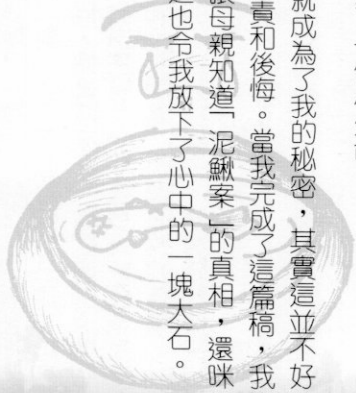 就成為了我的秘密，其實這並不好
責和後悔。當我完成了這篇稿，我
讓母親知道「泥鰍案」的真相，還咪
也令我放下了心中的一塊大石。